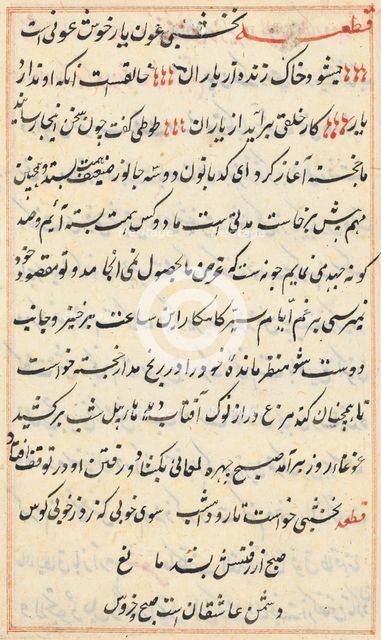 قطعه نخشبی عون یار خوش عونی است
میشود خاک زنده از یاران خالقست آنکه او ندارد
یار کار خلقی برآید از یاران طوطی گفت چون سخن اینجا رسانید
خجسته آغاز کرد ای کدبانو دو سه جانور ضعیف بهمت
مهم پیش برخاست مدتی است ما دو کس همت بسته آئیم و صد
گونه جهد می نمایم چونست که غرض ما بحصول نمی انجامد و تو بمقصود خود
نمیرسی برغم ایام ستمکار این ساعت برخیز و جانب
دوست شو منتظر مانده خود را دریغ مدار خجسته خواست
تا همچنان کند مرغ دراز نوک آفتاب شب برکشید
غوغاء روز برآمد صبح چهره لمعانی بکشاد و رفتن او در توقف افتاد
قطعه نخشبی خواست تا رود امشب سوی خوبی که زد ز خوبی کوس
صبح از رفتنش بشد مانع
دشمن عاشقان است صبح و خروس